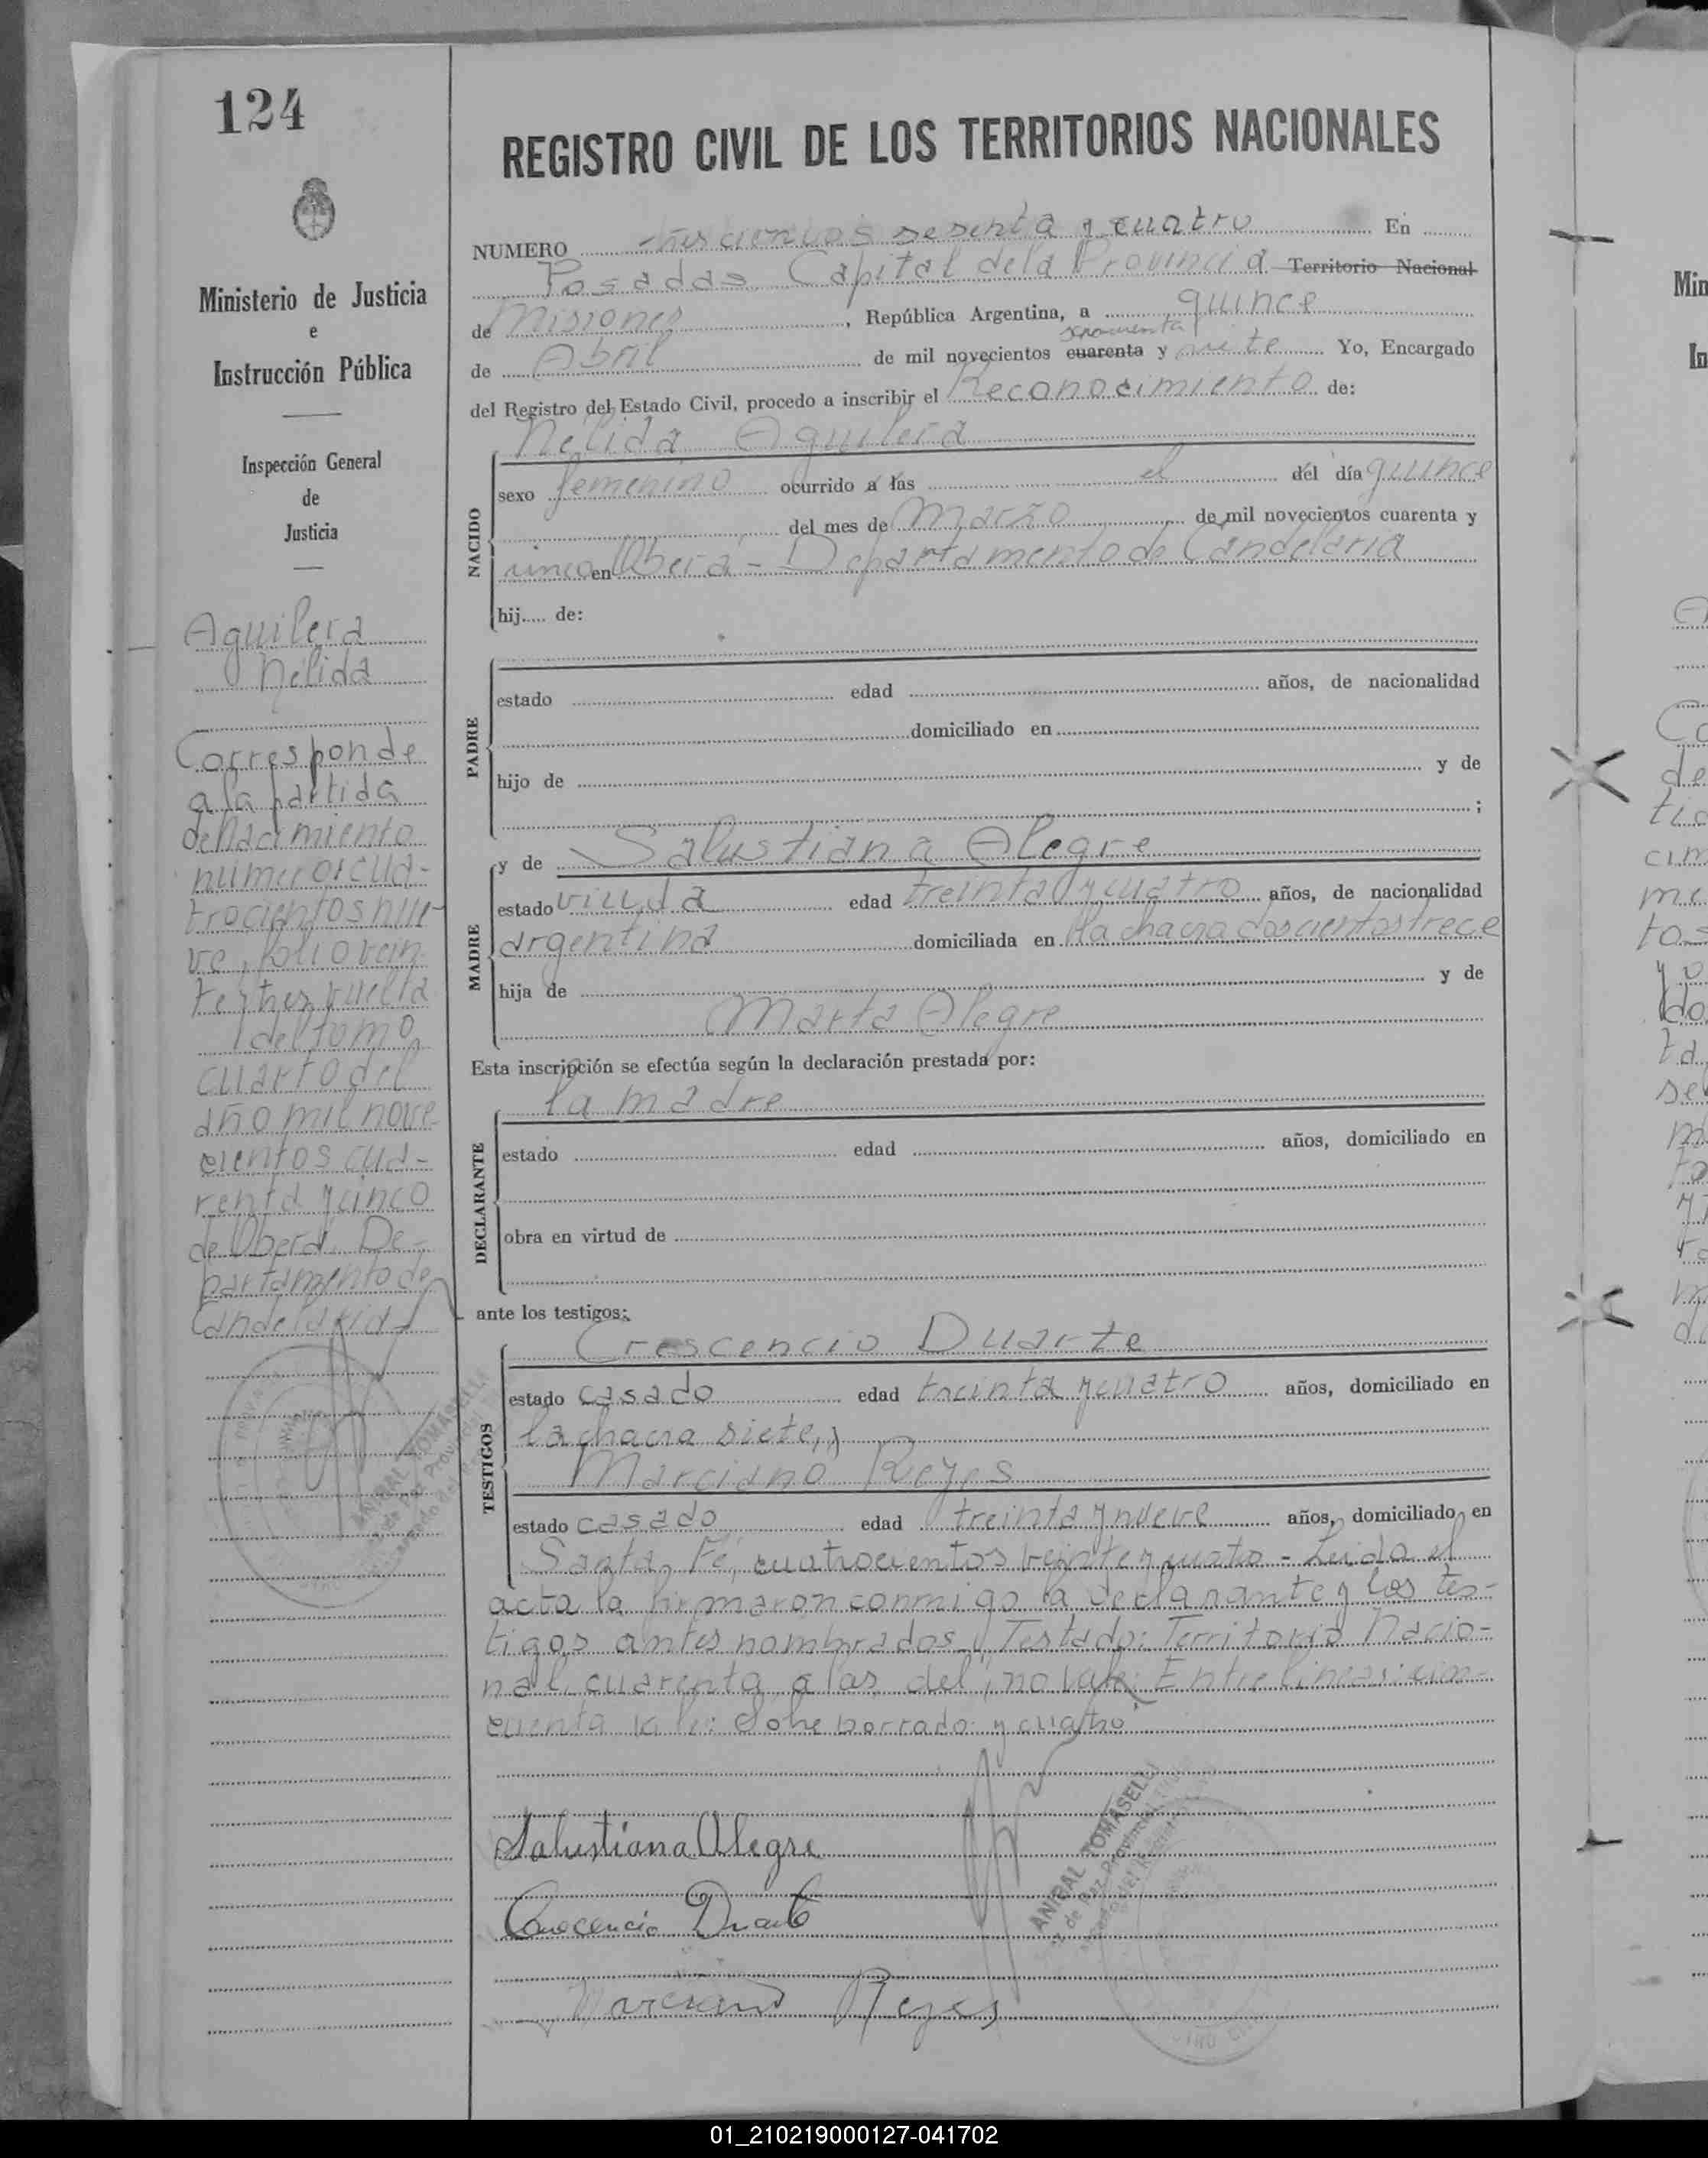 124
Ministerio de Justicia
e
Instrucción Pública
Inspección General
de
Justicia
Aguilera
Nélida
Corresponde
a la partida
de nacimiento
número: cua-
trocientos nue-
ve, folio vein
te y tres vuelta
del tomo
cuarto del
año mil nove
cientos cua-
renta y cinco
de Oberá. De-
partamento de
Candelaria
REGISTRO CIVIL DE LOS TERRITORIOS NACIONALES
NUMERO trescientos sesenta y cuatro En
Posadas Capital de la Provincia Territorio Nacional
de Misiones, República Argentina, a quince
cincuenta
de Abril de mil novecientos cuarenta y siete Yo, Encargado
del Registro del Estado Civil, procedo a inscribir el Reconocimiento de:
Nélida Aguilera
NACIDO
sexo femenino ocurrido a las el del día quince
del mes de Marzo de mil novecientos cuarenta y
cinco en Oberá - Departamento de Candelaria
hij..... de:
PADRE
estado edad años, de nacionalidad
domiciliado en
hijo de y de
;
MADRE
y de Salustiana Alegre
estado viuda edad treinta y cuatro años, de nacionalidad
argentina domiciliada en la chacra doscientos trece
hija de y de
Marta Alegre
Esta inscripción se efectúa según la declaración prestada por:
la madre
DECLARANTE
estado edad años, domiciliado en
obra en virtud de
ante los testigos:
TESTIGOS
Crescencio Duarte
estado casado edad treinta y cuatro años, domiciliado en
la chacra siete, y
Marciano Reyes
estado casado edad treinta y nueve años, domiciliado en
Santa Fé, cuatrocientos veinte y cuatro - Leida el
acta la firmaron conmigo la declarante y los tes-
tigos antes nombrados. Testado: Territorio Nacio-
nal, cuarenta, a las, del, no vale: Entre lineas: cin-
cuenta vale: Sobre borrado: y cuatro
Salustiana Alegre
Crescencio Duarte
Marciano Reyes
ANIBAL TOMASELLI
01_210219000127-041702